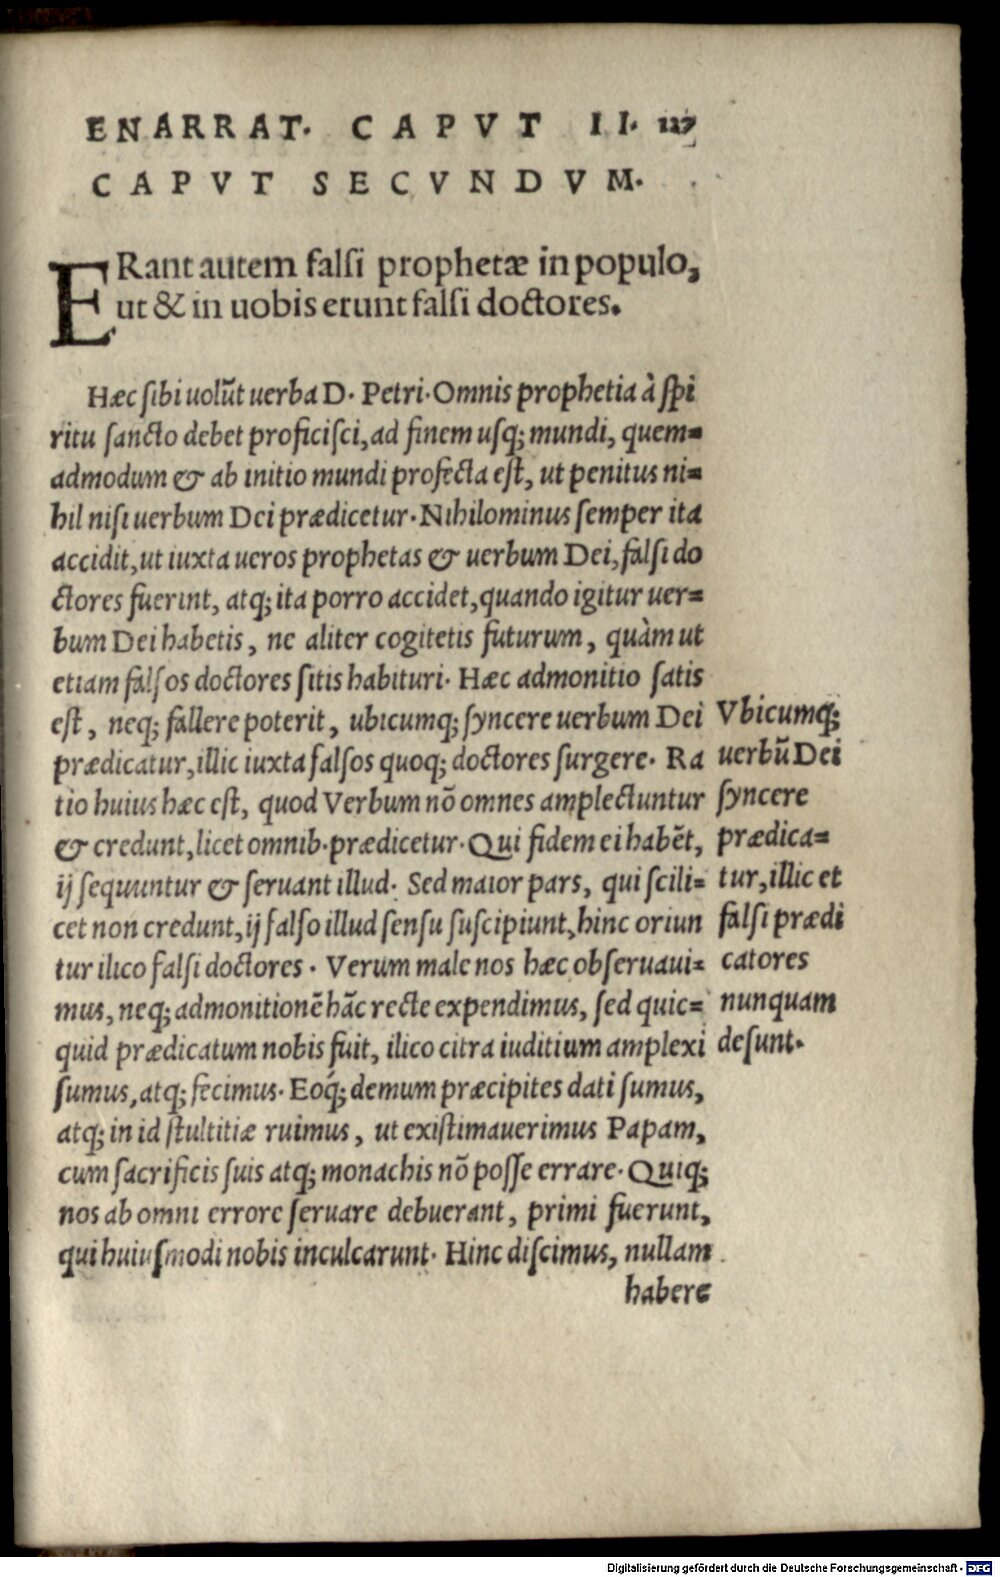 ENARRAT. CAPVT II. 127
CAPVT SECVNDVM.
ERant autem falsi prophetæ in populo,
ut & in uobis erunt falsi doctores.
Hæc sibi uolũt uerba D. Petri. Omnis prophetia à spi
ritu sancto debet proficisci, ad finem usq; mundi, quem=
admodum & ab initio mundi profecta est, ut penitus ni=
hil nisi uerbum Dei prædicetur. Nihilominus semper ita
accidit, ut iuxta ueros prophetas & uerbum Dei, falsi do
ctores fuerint, atq; ita porro accidet, quando igitur uer=
bum Dei habetis, ne aliter cogitetis futurum, quàm ut
etiam falsos doctores sitis habituri. Hæc admonitio satis
est, neq; fallere poterit, ubicumq; syncere uerbum Dei
prædicatur, illic iuxta falsos quoq; doctores surgere. Ra
tio huius hæc est, quod Verbum nõ omnes amplectuntur
& credunt, licet omnib. prædicetur. Qui fidem ei habẽt,
ij sequuntur & seruant illud. Sed maior pars, qui scili=
cet non credunt, ij falso illud sensu suscipiunt, hinc oriun
tur ilico falsi doctores. Verum male nos hæc obseruaui=
mus, neq; admonitionẽ hãc recte expendimus, sed quic=
quid prædicatum nobis fuit, ilico citra iuditium amplexi
sumus, atq; fecimus. Eoq́; demum præcipites dati sumus,
atq; in id stultitiæ ruimus, ut existimauerimus Papam,
cum sacrificis suis atq; monachis nõ posse errare. Quiq;
nos ab omni errore seruare debuerant, primi fuerunt,
qui huiusmodi nobis inculcarunt. Hinc discimus, nullam
habere
Vbicumq;
uerbũ Dei
syncere
prædica=
tur, illic et
falsi prædi
catores
nunquam
desunt.
Digitalisierung gefördert durch die Deutsche Forschungsgemeinschaft - DFG